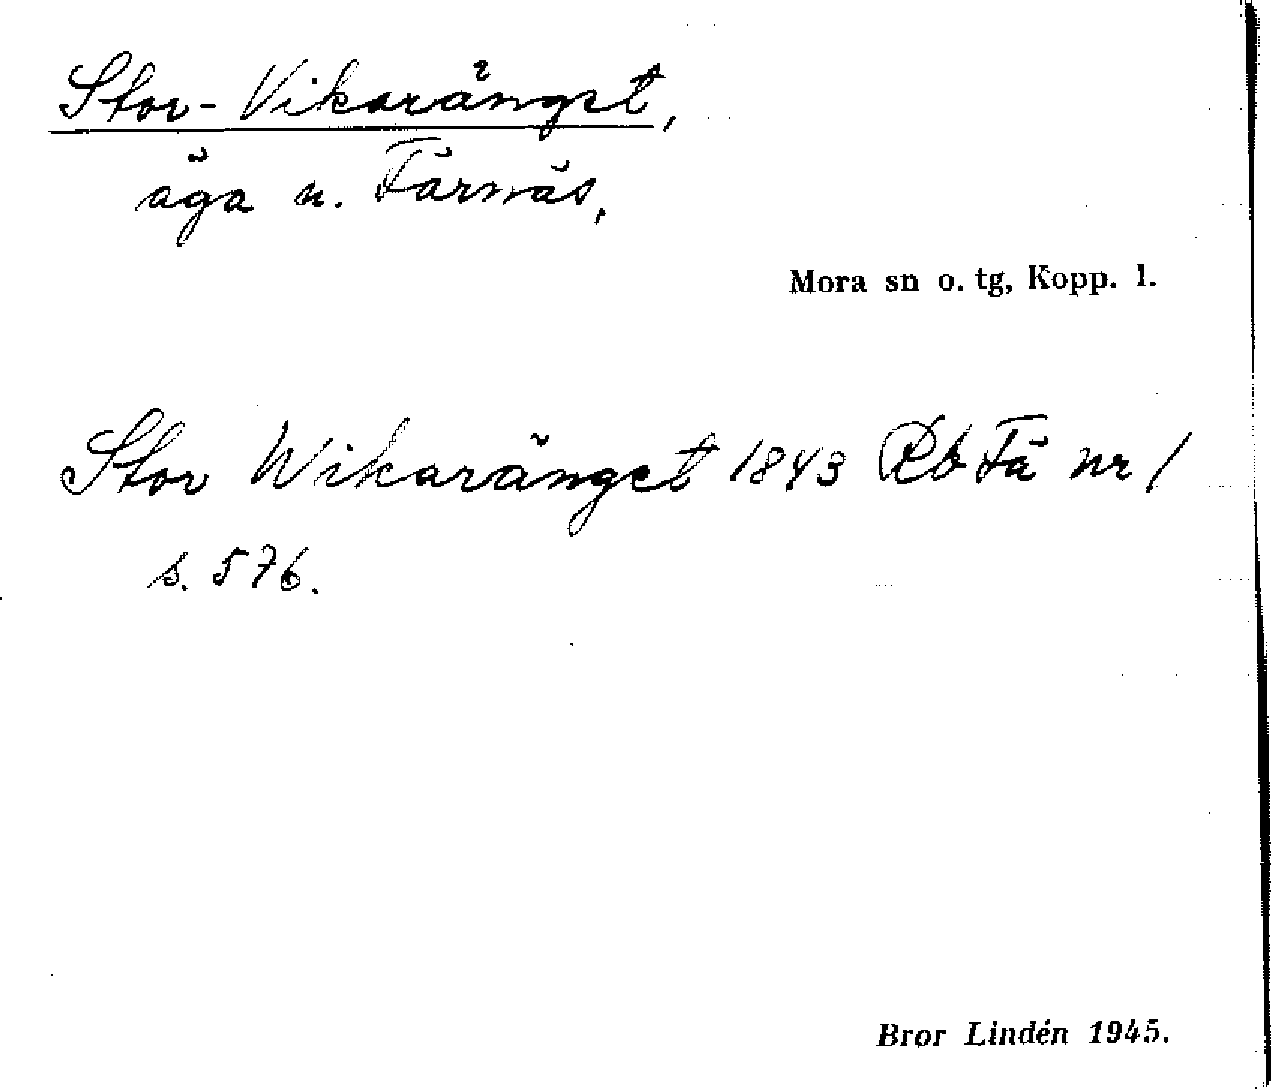 Stor-Vikaränget,
äga n. Färnäs,
Mora sn o. tg, Kopp. l.
Stor Wikaränget 1843 Rb Fä nr 1
s. 576.
Bror Lindén 1945.